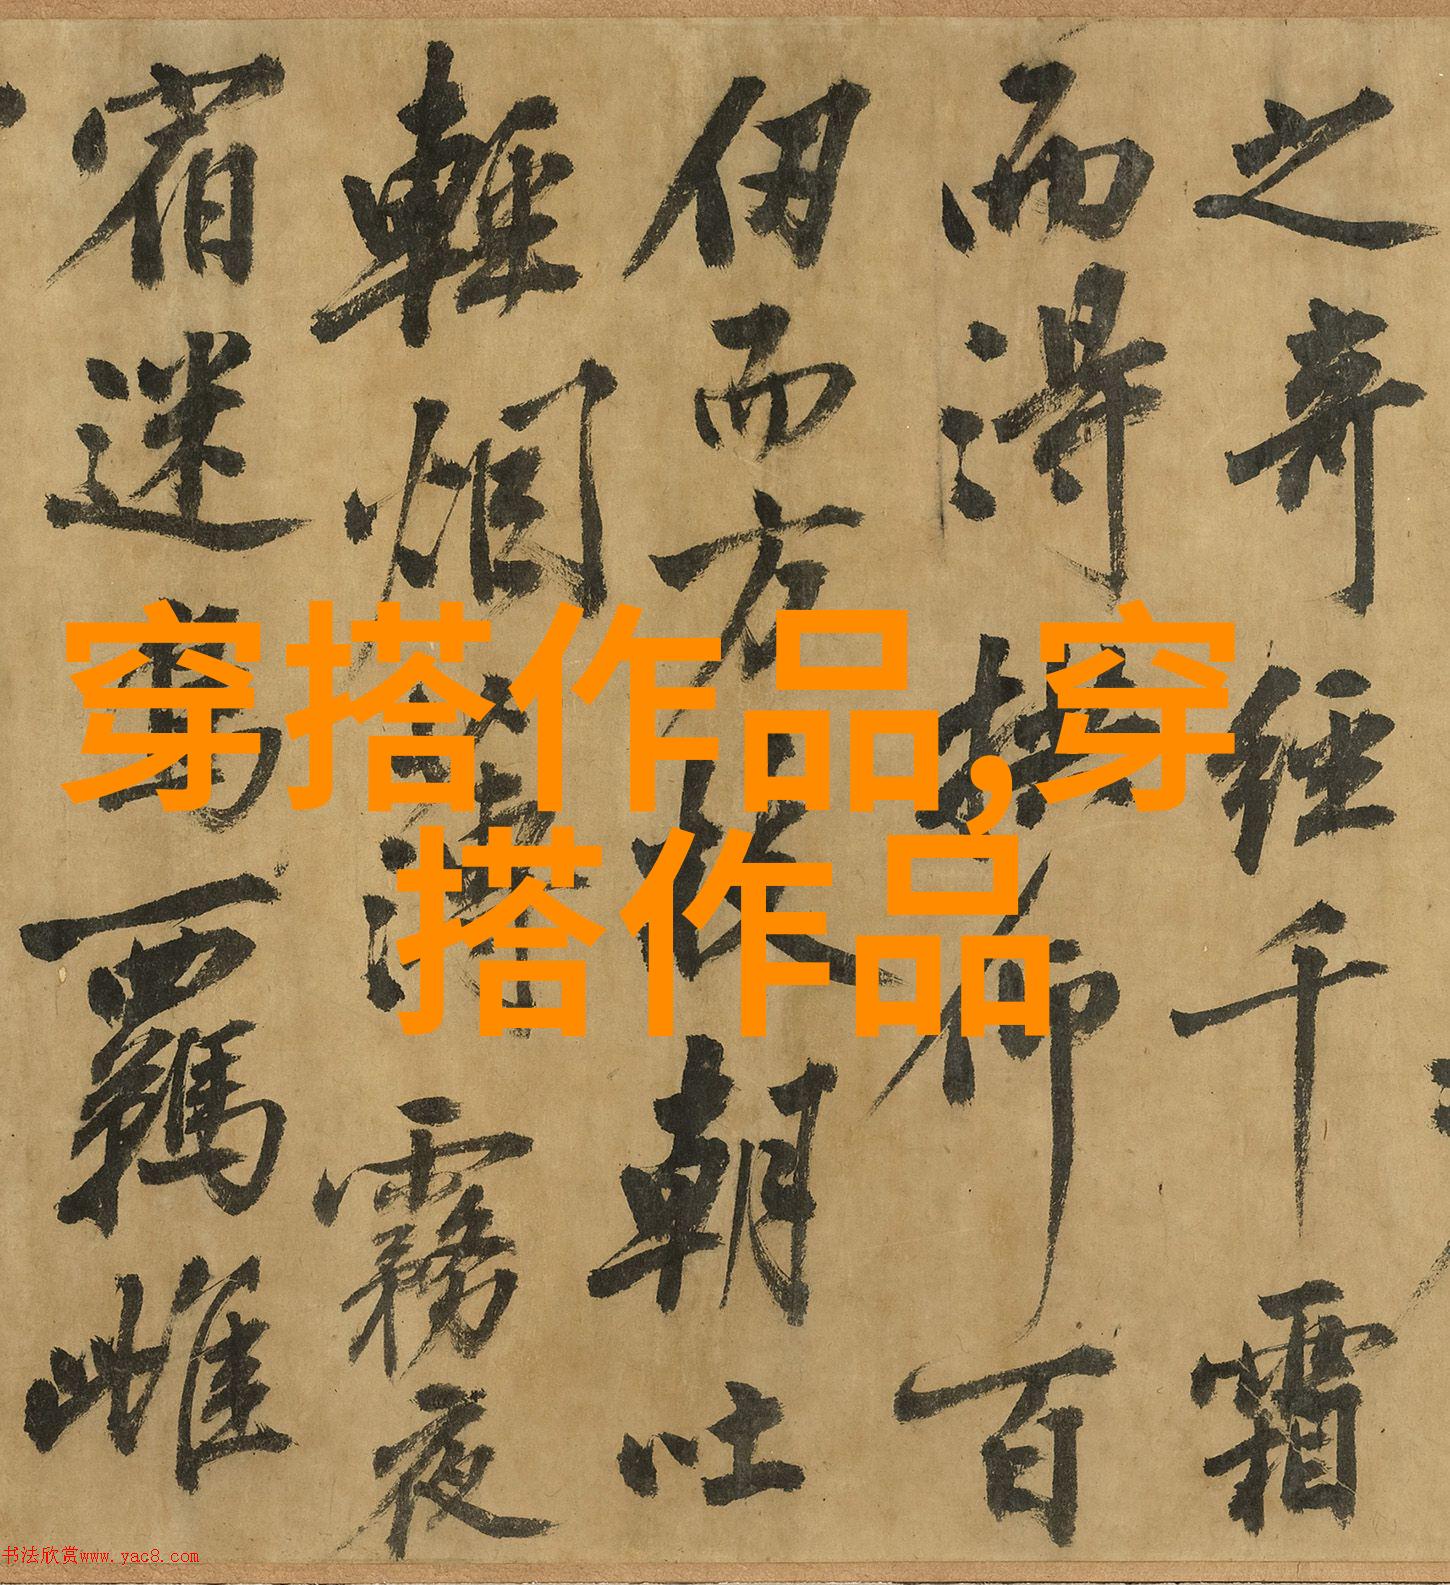 之奇經千霜
而淂拱仰百
仞而方枝朝吐
輕烟薄霧夜
宿迷鳥羈雌
穿搭作品,穿
搭作品
书法欣赏www.yac8.com